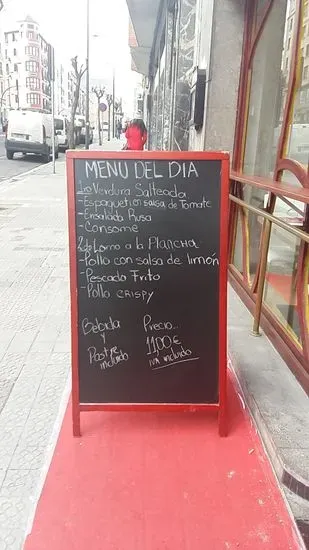 MENU DEL DIA
1º Verdura Salteada
- Espaqueti en salsa de Tomate
- Ensalada Rusa
- Consome
2do Lomo a la Plancha
- Pollo con salsa de limón
- Pescado Frito
- Pollo CRISPY
Bebida
y
Postre
incluido
Precio...
11,00 €
IVA incluido